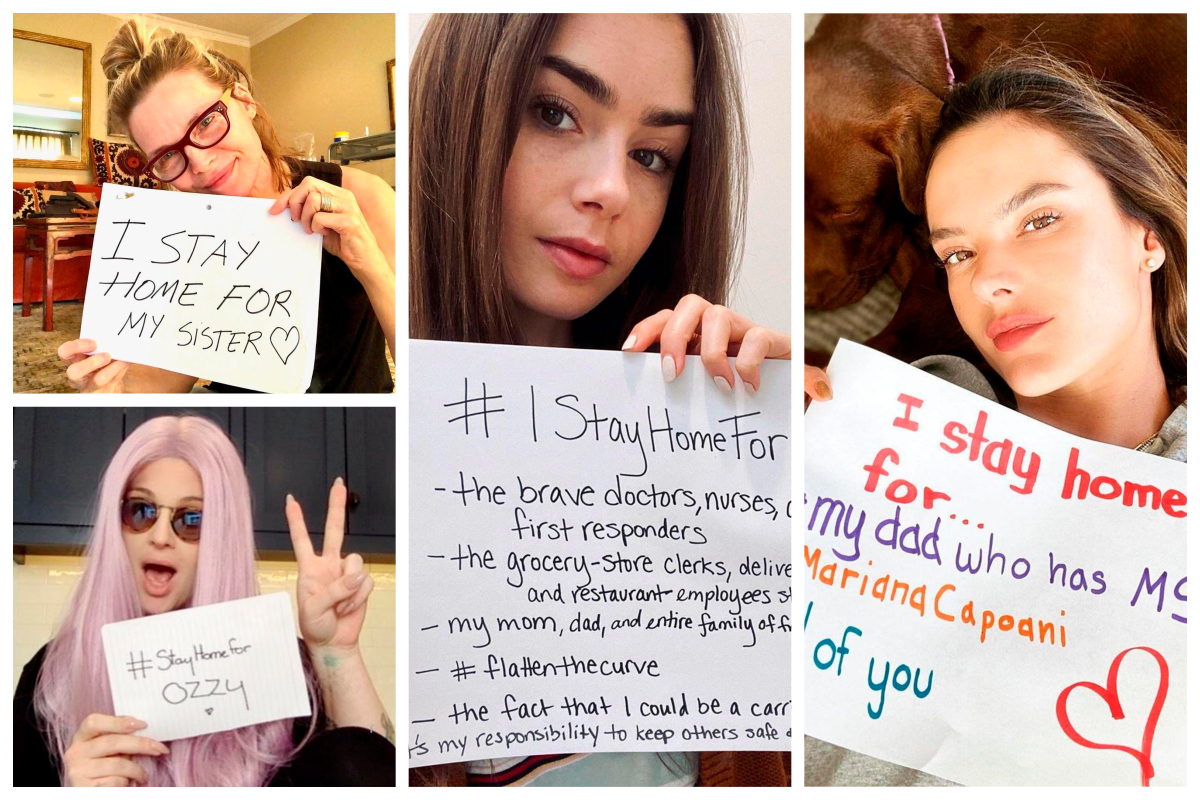 I STAY
HOME FOR
MY SISTER
#StayHomeFor
OZZY
#IStayHomeFor
- the brave doctors, nurses,
first responders
- the grocery-store clerks,
and restaurant employees
- my mom, dad, and entire family of
- #flattenthecurve
- the fact that I could be a
my responsibility to keep others safe
I stay home
for...
my dad who has MS
Mariana Capoani
of you